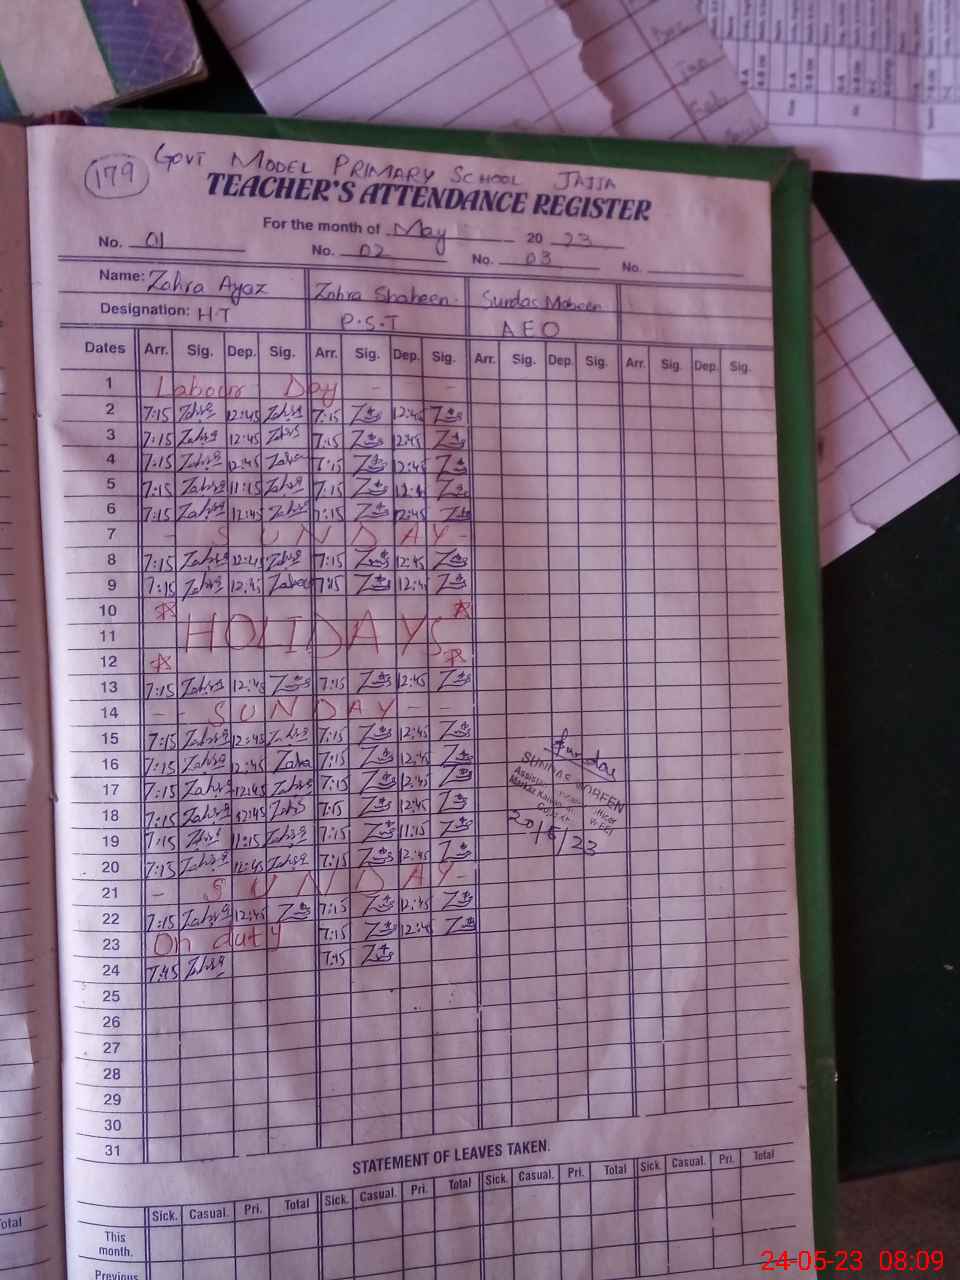 179
GOVT MODEL PRIMARY SCHOOL JAJJA
TEACHER'S ATTENDANCE REGISTER
For the month of May 2023
No. 01 No. 02 No. 03 No.
Name: Zahra Ayaz Zahra Shaheen. Sundas Mobeen
Designation: H.T P.S.T AEO
Dates Arr. Sig. Dep. Sig. Arr. Sig. Dep. Sig. Arr. Sig. Dep. Sig. Arr. Sig. Dep. Sig.
1 Labour Day - -
2 7:15 Zahra 12:45 Zahra 7:15 12:45
3 7:15 Zahra 12:45 Zahra 7:15 12:45
4 7:15 Zahra 12:45 Zahra 7:15 12:45
5 7:15 Zahra 11:15 Zahra 7:15
6 7:15 Zahra 12:45 Zahra 7:15 12:45
7 - SUNDAY -
8 7:15 Zahra 12:45 Zahra 7:15 12:45
9 7:15 Zahra 12:45 Zahra 7:15 12:45
10
11 HOLIDAYS
12
13 7:15 Zahra 12:45 7:15 12:45
14 - - SUNDAY - -
15 7:15 Zahra 12:45 Zahra 7:15 12:45
16 7:15 Zahra 12:45 Zahra 7:15 12:45
17 7:15 Zahra 12:45 Zahra 7:15 12:45
18 7:15 Zahra 12:45 Zahra 7:15 12:45
19 7:15 Zahra 11:15 Zahra 7:15 11:15
20 7:15 Zahra 12:45 Zahra 7:15 12:45
21 - SUNDAY -
22 7:15 Zahra 12:45 7:15 12:45
23 On duty 7:15 12:45
24 7:45 Zahra
25
26
27
28
29
30
31
Sundas
SUNDAS MOBEEN
20/5/23
STATEMENT OF LEAVES TAKEN.
Sick. Casual. Pri. Total Sick. Casual. Pri. Total Sick. Casual. Pri. Total Sick. Casual. Pri. Total
This
month.
Previous
24-05-23 08:09